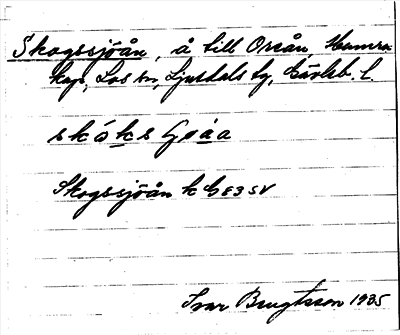 Skogssjöån, å till Oreån, Hamra
kap, Los sn, Ljusdals tg, Gävleb. l.
skó̠ks Ɉøáa
Skogssjöån k G E 3 SV
Ivar Bengtsson 1935